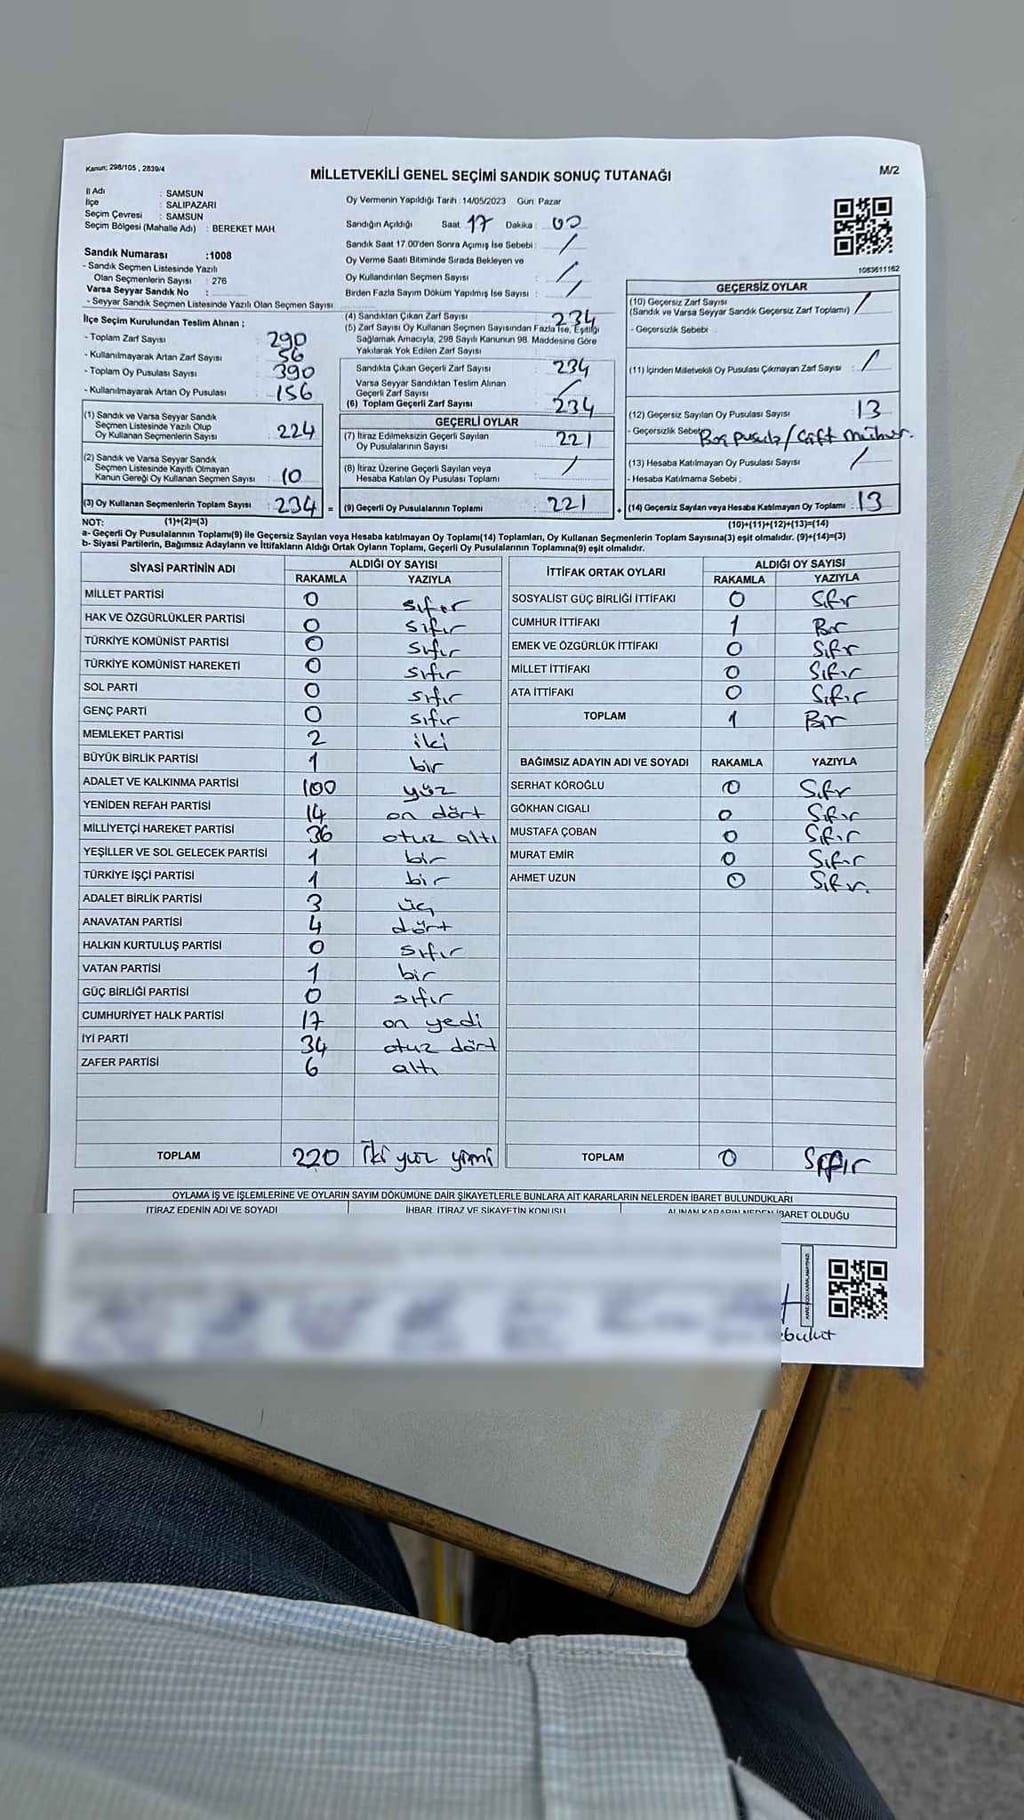 Kanun: 298/105 , 2839/4
MİLLETVEKİLİ GENEL SEÇİMİ SANDIK SONUÇ TUTANAĞI
M/2
İl Adı : SAMSUN
İlçe : SALIPAZARI
Seçim Çevresi : SAMSUN
Seçim Bölgesi (Mahalle Adı) : BEREKET MAH.
Oy Vermenin Yapıldığı Tarih :14/05/2023 Gün: Pazar
Sandığın Açıldığı Saat: 17 Dakika : 00
Sandık Saat 17.00'den Sonra Açılmış İse Sebebi : /
Oy Verme Saati Bitiminde Sırada Bekleyen ve
Oy Kullandırılan Seçmen Sayısı : /
Birden Fazla Sayım Döküm Yapılmış İse Sayısı : /
1063611162
Sandık Numarası :1008
- Sandık Seçmen Listesinde Yazılı
Olan Seçmenlerin Sayısı : 276
Varsa Seyyar Sandık No :
- Seyyar Sandık Seçmen Listesinde Yazılı Olan Seçmen Sayısı
İlçe Seçim Kurulundan Teslim Alınan ;
- Toplam Zarf Sayısı : 290
- Kullanılmayarak Artan Zarf Sayısı : 56
- Toplam Oy Pusulası Sayısı : 390
- Kullanılmayarak Artan Oy Pusulası : 156
(1) Sandık ve Varsa Seyyar Sandık
Seçmen Listesinde Yazılı Olup
Oy Kullanan Seçmenlerin Sayısı : 224
(2) Sandık ve Varsa Seyyar Sandık
Seçmen Listesinde Kayıtlı Olmayan
Kanun Gereği Oy Kullanan Seçmen Sayısı : 10
(3) Oy Kullanan Seçmenlerin Toplam Sayısı : 234 =
(4) Sandıktan Çıkan Zarf Sayısı : 234
(5) Zarf Sayısı Oy Kullanan Seçmen Sayısından Fazla İse, Eşitliği
Sağlamak Amacıyla, 298 Sayılı Kanunun 98. Maddesine Göre
Yakılarak Yok Edilen Zarf Sayısı :
Sandıkta Çıkan Geçerli Zarf Sayısı : 234
Varsa Seyyar Sandıktan Teslim Alınan
Geçerli Zarf Sayısı : /
(6) Toplam Geçerli Zarf Sayısı : 234
GEÇERLİ OYLAR
(7) İtiraz Edilmeksizin Geçerli Sayılan
Oy Pusulalarının Sayısı : 221
(8) İtiraz Üzerine Geçerli Sayılan veya
Hesaba Katılan Oy Pusulası Toplamı : /
(9) Geçerli Oy Pusulalarının Toplamı : 221 +
GEÇERSİZ OYLAR
(10) Geçersiz Zarf Sayısı
(Sandık ve Varsa Seyyar Sandık Geçersiz Zarf Toplamı) : /
- Geçersizlik Sebebi :
(11) İçinden Milletvekili Oy Pusulası Çıkmayan Zarf Sayısı : /
(12) Geçersiz Sayılan Oy Pusulası Sayısı : 13
- Geçersizlik Sebebi Boş pusula/Çift mühür.
(13) Hesaba Katılmayan Oy Pusulası Sayısı : /
- Hesaba Katılmama Sebebi :
(14) Geçersiz Sayılan veya Hesaba Katılmayan Oy Toplamı : 13
NOT: (1)+(2)=(3)
(10)+(11)+(12)+(13)=(14)
a- Geçerli Oy Pusulalarının Toplamı(9) ile Geçersiz Sayılan veya Hesaba katılmayan Oy Toplamı(14) Toplamları, Oy Kullanan Seçmenlerin Toplam Sayısına(3) eşit olmalıdır. (9)+(14)=(3)
b- Siyasi Partilerin, Bağımsız Adayların ve İttifakların Aldığı Ortak Oyların Toplamı, Geçerli Oy Pusulalarının Toplamına(9) eşit olmalıdır.
SİYASİ PARTİNİN ADI ALDIĞI OY SAYISI
RAKAMLA YAZIYLA
MİLLET PARTİSİ 0 sıfır
HAK VE ÖZGÜRLÜKLER PARTİSİ 0 sıfır
TÜRKİYE KOMÜNİST PARTİSİ 0 sıfır
TÜRKİYE KOMÜNİST HAREKETİ 0 sıfır
SOL PARTİ 0 sıfır
GENÇ PARTİ 0 sıfır
MEMLEKET PARTİSİ 2 iki
BÜYÜK BİRLİK PARTİSİ 1 bir
ADALET VE KALKINMA PARTİSİ 100 yüz
YENİDEN REFAH PARTİSİ 14 on dört
MİLLİYETÇİ HAREKET PARTİSİ 36 otuz altı
YEŞİLLER VE SOL GELECEK PARTİSİ 1 bir
TÜRKİYE İŞÇİ PARTİSİ 1 bir
ADALET BİRLİK PARTİSİ 3 üç
ANAVATAN PARTİSİ 4 dört
HALKIN KURTULUŞ PARTİSİ 0 sıfır
VATAN PARTİSİ 1 bir
GÜÇ BİRLİĞİ PARTİSİ 0 sıfır
CUMHURİYET HALK PARTİSİ 17 on yedi
İYİ PARTİ 34 otuz dört
ZAFER PARTİSİ 6 altı
TOPLAM 220 İki yüz yirmi
İTTİFAK ORTAK OYLARI ALDIĞI OY SAYISI
RAKAMLA YAZIYLA
SOSYALİST GÜÇ BİRLİĞİ İTTİFAKI 0 Sıfır
CUMHUR İTTİFAKI 1 Bir
EMEK VE ÖZGÜRLÜK İTTİFAKI 0 Sıfır
MİLLET İTTİFAKI 0 Sıfır
ATA İTTİFAKI 0 Sıfır
TOPLAM 1 Bir
BAĞIMSIZ ADAYIN ADI VE SOYADI RAKAMLA YAZIYLA
SERHAT KÖROĞLU 0 Sıfır
GÖKHAN CIGALI 0 Sıfır
MUSTAFA ÇOBAN 0 Sıfır
MURAT EMİR 0 Sıfır
AHMET UZUN 0 Sıfır.
TOPLAM 0 Sıfır
OYLAMA İŞ VE İŞLEMLERİNE VE OYLARIN SAYIM DÖKÜMÜNE DAİR ŞİKAYETLERLE BUNLARA AİT KARARLARIN NELERDEN İBARET BULUNDUKLARI
İTİRAZ EDENİN ADI VE SOYADI İHBAR, İTİRAZ VE ŞİKAYETİN KONUSU ALINAN KARARIN NEDEN İBARET OLDUĞU
bulut